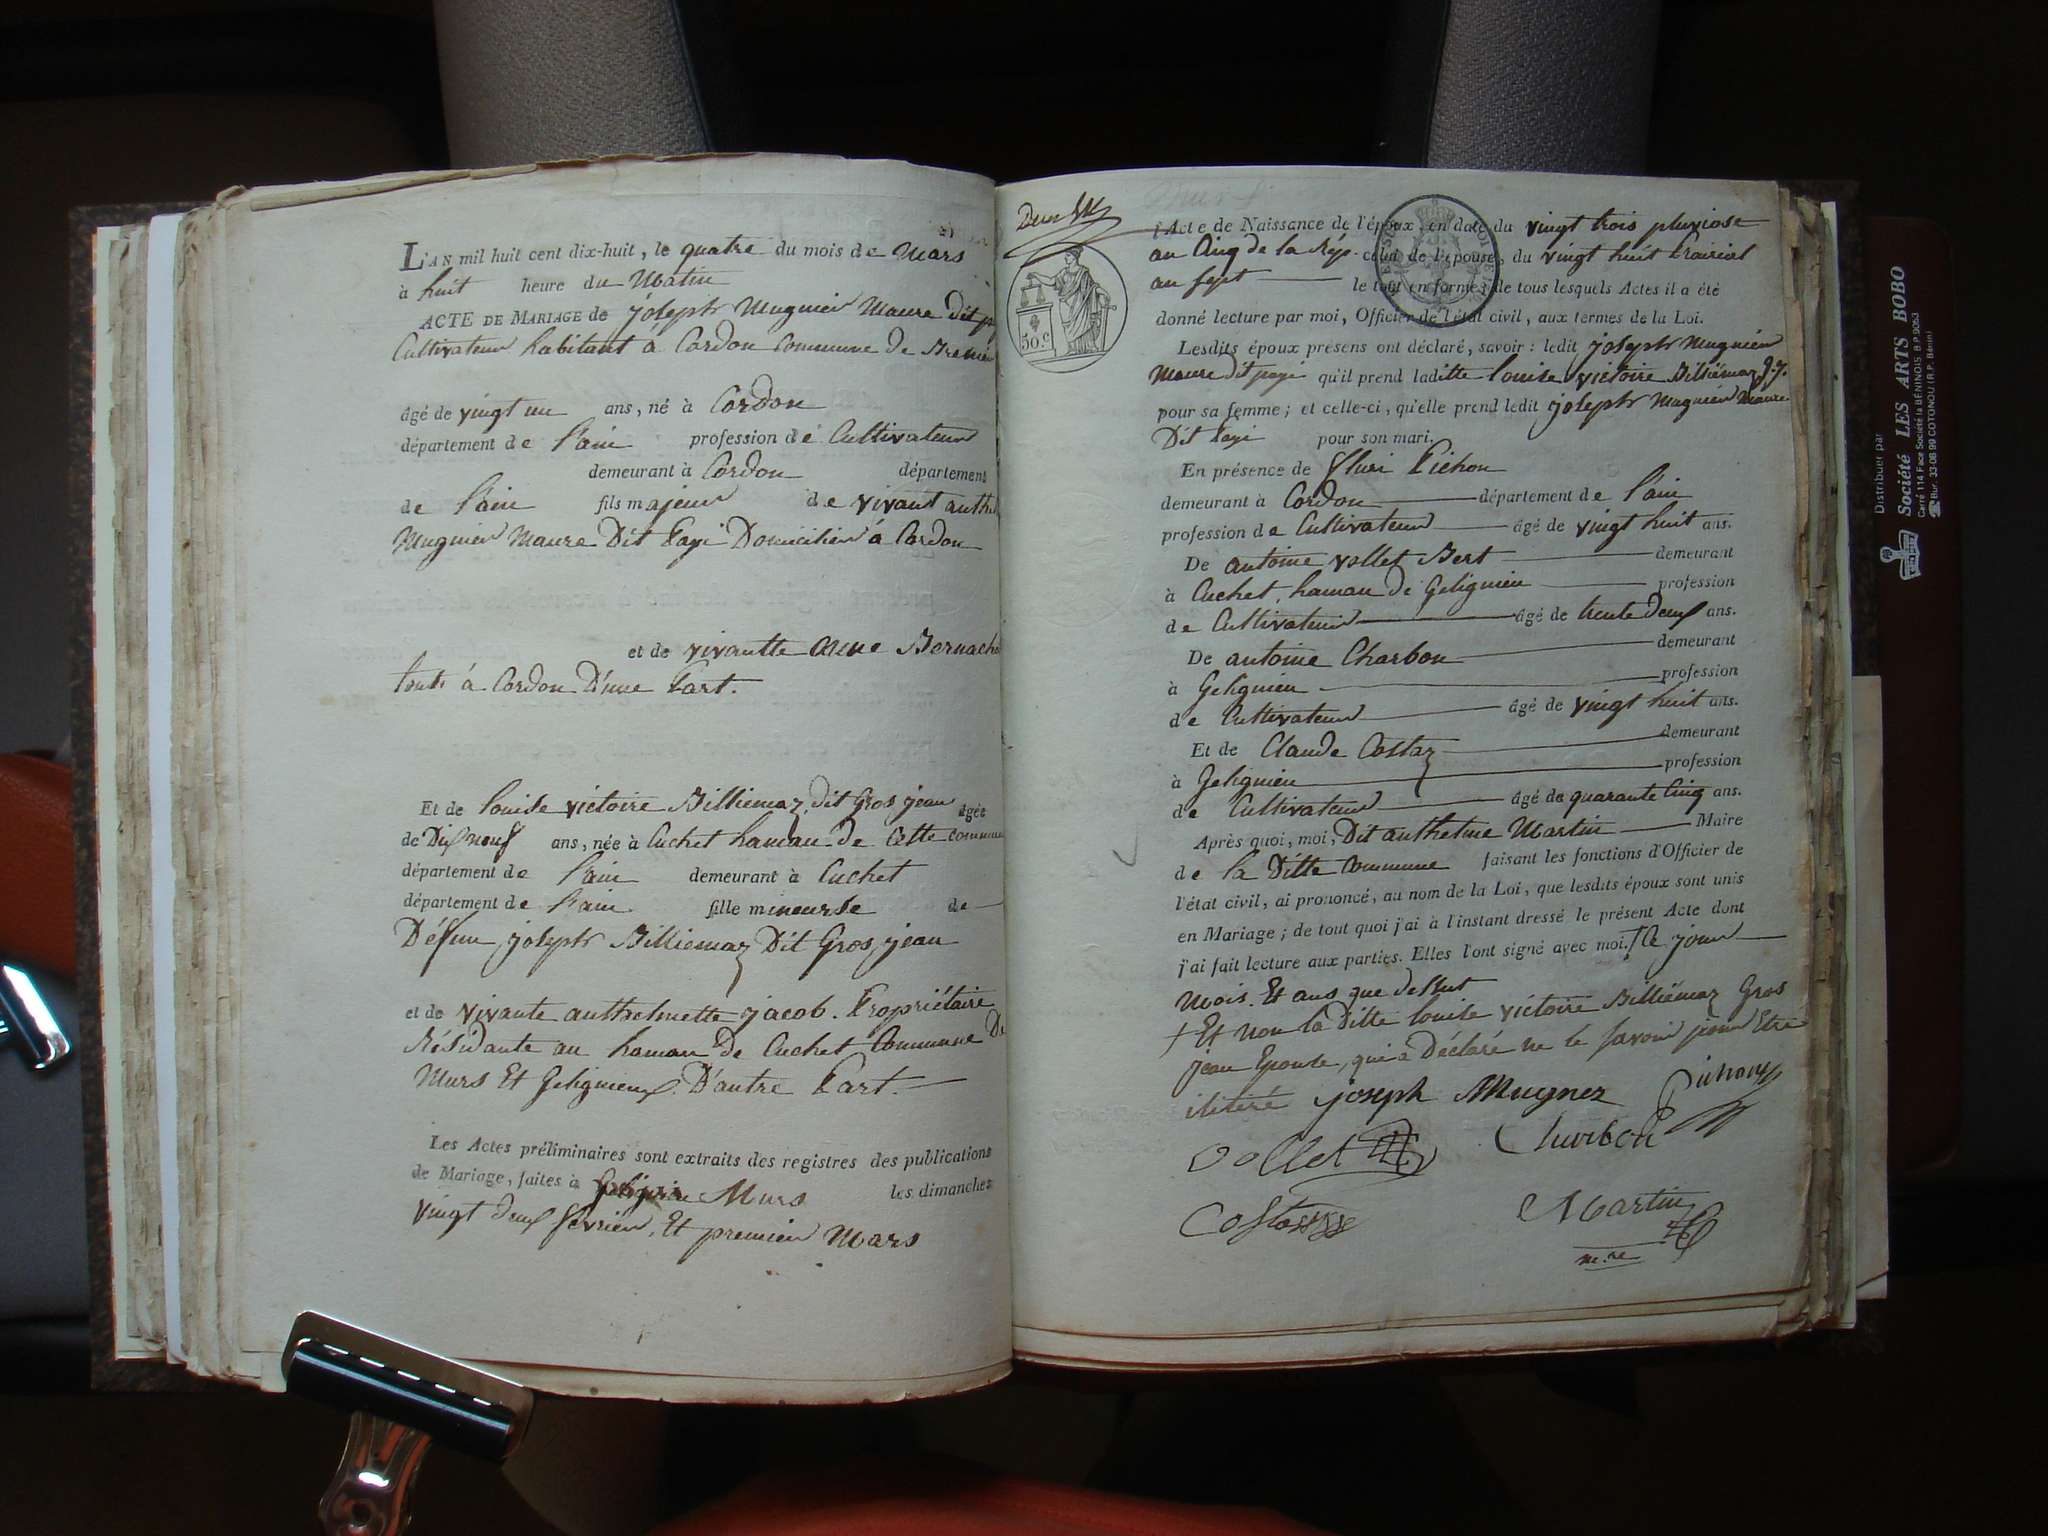 L'AN mil huit cent dix-huit, le quatre du mois de Mars
à huit heure du Matin
ACTE DE MARIAGE de joseph Mugnier Maure dit
Cultivateur habitant à Cordon Commune de
âgé de vingt un ans, né à Cordon
département de l'ain profession de Cultivateur
demeurant à Cordon département
de l'ain fils majeur de vivant
Mugnier Maure Dit Pagi Domicilier à Cordon
et de vivantte anne
tout à Cordon D'une Part.
Et de louise victoire Billiemaz dit Gros jean âgée
de Dix neuf ans, née à Cuchet hamau de Cette commune
département de l'ain demeurant à Cuchet
département de l'ain fille mineurse de
Défun joseph Billiemaz Dit Gros jean
et de vivante anthelmette jacob. Propriétaire
Résidante au hamau de Cuchet Commune De
Murs Et Gelignieux D'autre Part.
Les Actes préliminaires sont extraits des registres des publications
de Mariage, faites à Murs les dimanches
vingt deux fevrier, Et premier Mars
50.c
l'Acte de Naissance de l'époux, en date du vingt trois pluviose
an Cinq de la Rép. celui de l'épouse, du vingt huit Prairial
an sept le tout en forme; de tous lesquels Actes il a été
donné lecture par moi, Officier de l'état civil, aux termes de la Loi.
Lesdits époux présens ont déclaré, savoir: ledit joseph Mugnier
Maure dit page qu'il prend laditte louise victoire Billiémaz g.j.
pour sa femme; et celle-ci, qu'elle prend ledit joseph Mugnier Maure
Dit Pagi pour son mari.
En présence de Pichon
demeurant à Cordon département de l'ain
profession de Cultivateur âgé de vingt huit ans.
De antoine vollet Bert demeurant
à Cuchet, hamau de Gelignieu profession
de Cultivateur âgé de trente deux ans.
De antoine Charbon demeurant
à Gelignieu profession
de Cultivateur âgé de vingt huit ans.
Et de Claude Costaz demeurant
à Gelignieu profession
de Cultivateur âgé de quarante Cinq ans.
Après quoi, moi, Dit anthelme Martin Maire
de la Ditte Commune faisant les fonctions d'Officier de
l'état civil, ai prononcé, au nom de la Loi, que lesdits époux sont unis
en Mariage; de tout quoi j'ai à l'instant dressé le présent Acte dont
j'ai fait lecture aux parties. Elles l'ont signé avec moi. † le jour
Mois. Et ans que dessus
† Et non la ditte louise victoire Billiémaz Gros
jean Epouse, qui à Déclaré ne le savoir pour Etre
ilitéré joseph Mugnez Pichon
Vollet Charbon
Costaz
Martin
m.re
Distribuer par
Société LES ARTS BOBO
Carré 114 Face Société la BÉNINOIS B.P. 9063
Bur. 33-08 99 COTONOU (R.P. Bénin)